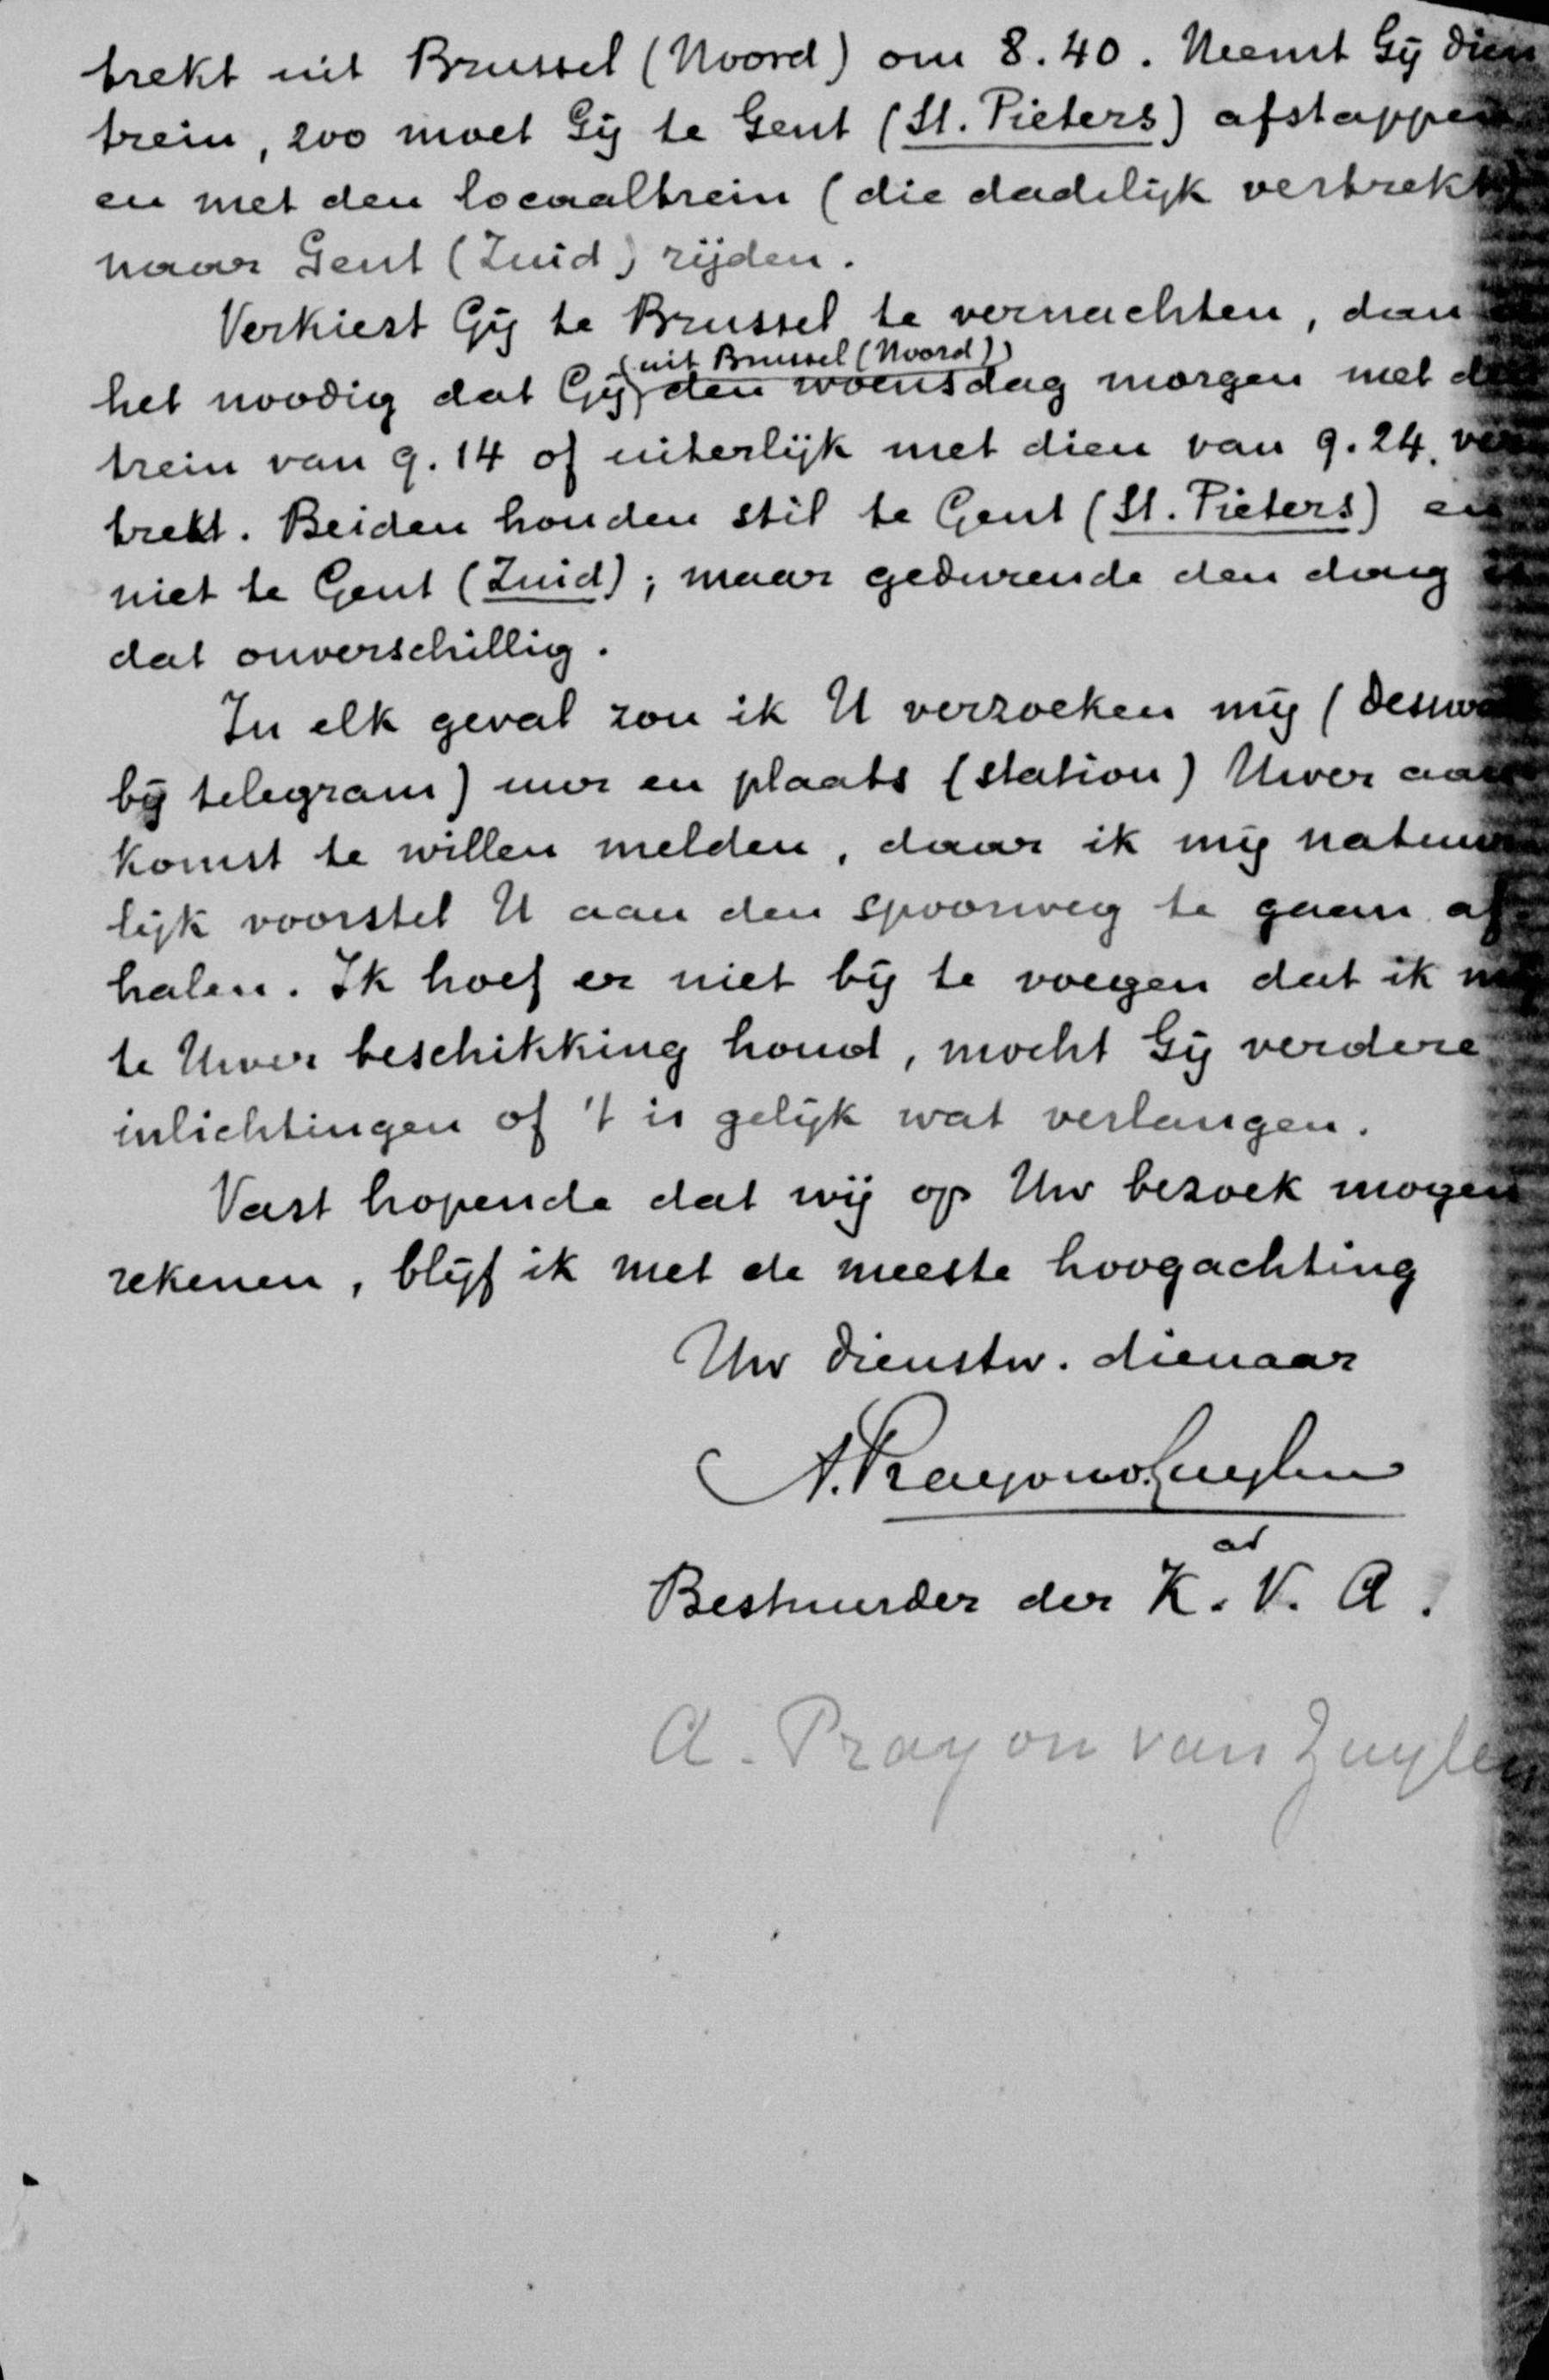 trekt uit Brussel (Noord) om 8.40. Neemt Gij dien
trein, zoo moet Gij te Gent (St. Pieters) afstappen
en met den locaaltrein (die dadelijk vertrekt)
naar Gent (Zuid) rijden.
Verkiest Gij te Brussel te vernachten, dan
(uit Brussel (Noord))
het noodig dat Gij den woensdag morgen met
trein van 9.14 of uiterlijk met dien van 9.24. ver
trekt. Beiden houden stil te Gent (St. Pieters) en
niet te Gent (Zuid); maar gedurende den dag
dat onverschillig.
In elk geval zou ik U verzoeken mij (desno
bij telegram) uur en plaats (station) Uwer aan
komst te willen melden, daar ik mij natuur
lijk voorstel U aan den spoorweg te gaan af
halen. Ik hoef er niet bij te voegen dat ik mij
te Uwer beschikking houd, mocht Gij verdere
inlichtingen of 't is gelijk wat verlangen.
Vast hopende dat wij op Uw bezoek mogen
rekenen, blijf ik met de meeste hoogachting
Uw dienstw. dienaar
A. Prayon v. Zuylen
Bestuurder der K. V. A.
A. Prayon van Zuylen